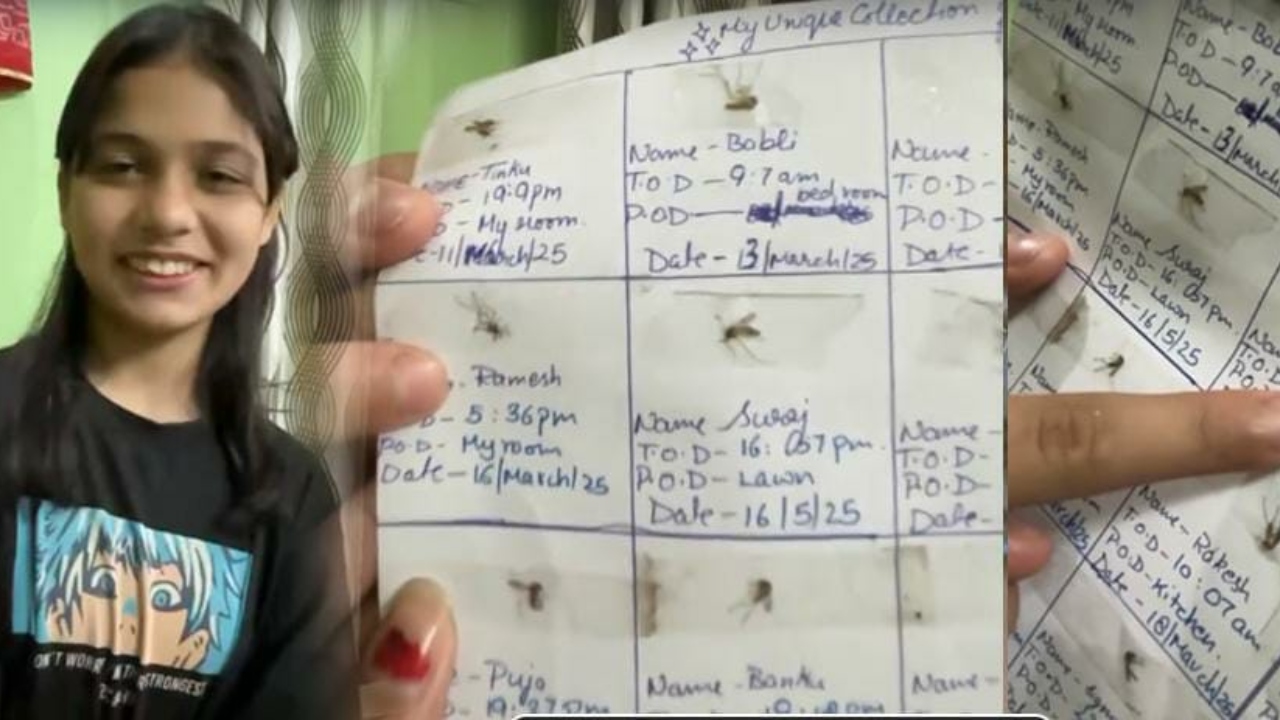 My Unique Collection
Name - Tinku
- 19:9pm
- My room.
-11/March/25
Name - Bobli
T.O.D - 9:7am
bed room
P.O.D -
Date - 13/March/25
Name -
T.O.D -
P.O.D -
Date -
Ramesh
- 5:36pm
P.O.D - My room
Date - 16/March/25
Name Suraj
T.O.D - 16:057pm.
P.O.D - Lawn
Date - 16/5/25
Name -
T.O.D -
P.O.D -
Date -
- Puja
Name - Banku
Name -
My room
11/March/25
Name - Bob
T.O.D - 9:7a
P.O.D -
Date - 13/March
Ramesh
- 5:36pm
- My room
16/March/25
Name Suraj
T.O.D - 16:057pm.
P.O.D - Lawn
Date - 16/5/25
Name - Rakesh
T.O.D - 10:07am
P.O.D - Kitchen.
Date - 18/March/25
STRONGEST